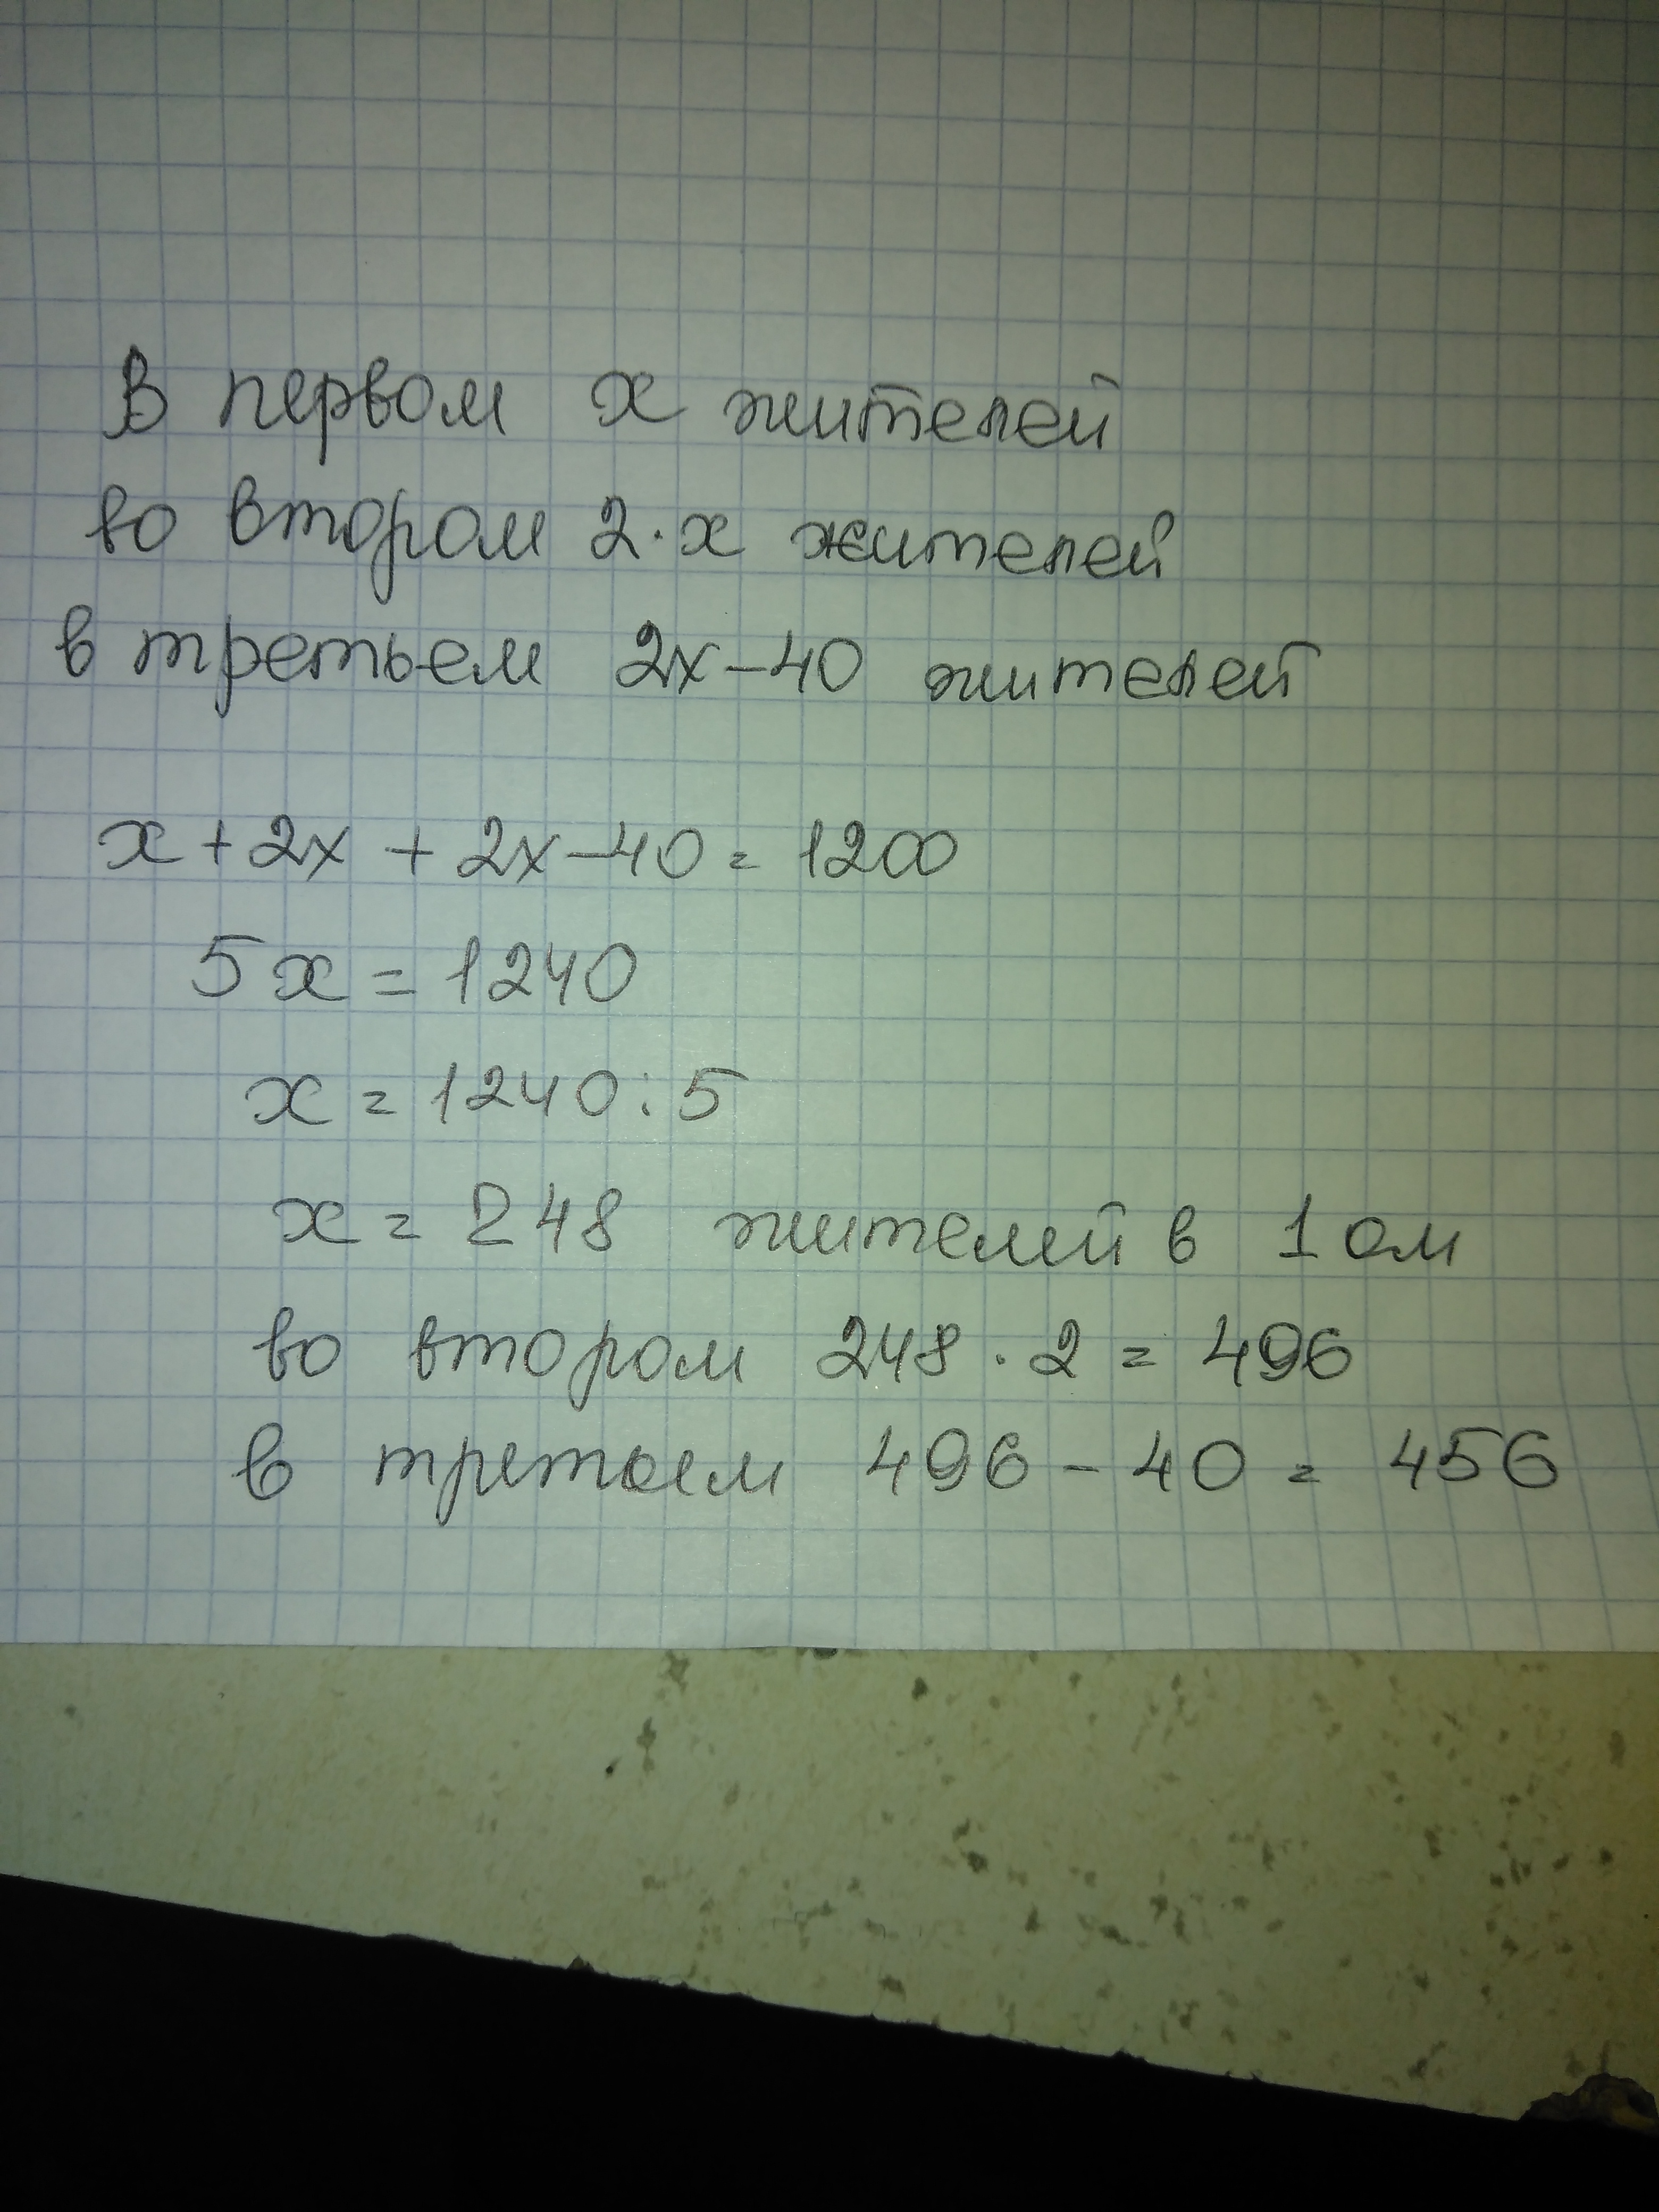 В первом x жителей
во втором 2·x жителей
в третьем 2x-40 жителей
x+2x+2x-40=1200
5x=1240
x=1240:5
x=248 жителей в 1 ом
во втором 248·2=496
в третьем 496-40=456